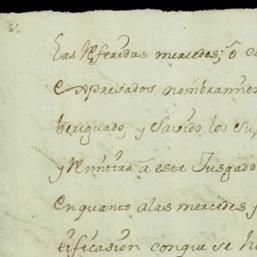 las Referidas mercedes; ô
Expresados nombramien
beriguado, y Savido los su
y Remitira â este Jusgado
Enquanto alas mercedes
tificasion conque se h